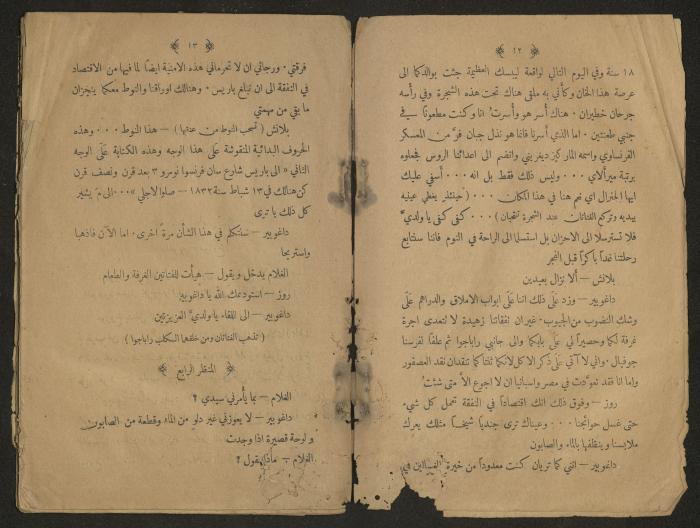 ﴿ ١٢ ﴾
١٨ سنة وفي اليوم التالي لواقعة ليبسك العظيمة جئت بوالدكما الى
عرصة هذا الخان وكأني به ملقى هناك تحت هذه الشجرة وفي رأسه
جرحان خطيران ٠ هناك أُسر هو وأُسرتُ انا وكنت مطعونًا في
جنبي طعنتين ٠ اما الذي أسرنا فانما هو نذل جبان فرَّ من المعسكر
الفرنساوي واسمه المركيز ديغريني وانضم الى اعدائنا الروس فجعلوه
برتبة ميرالاي ٠٠٠ وليس ذلك فقط بل انه ٠٠٠ أسفي عليك
ايها الجنرال اي نجم هنا في هذا المكان ٠٠٠ (حينئذٍ يغطي عينيه
بيديه وتركع الفتاتان عند الشجرة تنحبان) ٠٠٠ كفى كفى يا ولديَّ
فلا تسترسلا الى الاحزان بل استسلما الى الراحة في النوم فاننا سنتابع
رحلتنا غدًا باكرًا قبل الفجر
بلانش — ألا نزال بعيدين
داغوبير — وزد على ذلك اننا على ابواب الاملاق والدراهم على
وشك النضوب من الجيوب ٠ غير ان نفقاتنا زهيدة لا تتعدى اجرة
غرفة لكما وحصيرًا لي على بابكما والى جانبي راباجوا ثم علفًا لفرسنا
جوفيال ٠ واني لا آتي على ذكر الاكل لانكما تنقدان نقد العصفور
واما انا فقد تعودت في مصر واسبانيا ان لا اجوع الا متى شئتُ
روز — وفوق ذلك انك اقتصادًا في النفقة تعمل كل شيء
حتى غسل حوائجنا ٠٠٠ وعيناك ترى جنديًا شيخًا مثلك يعرك
ملابسنا وينظفها بالماء والصابون
داغوبير — انني كما تريان كنت معدودًا من خيرة الغسالين في
﴿ ١٣ ﴾
فرقتي ٠ ورجائي ان لا تحرماني هذه الامنية ايضًا لما فيها من الاقتصاد
في النفقة الى ان تبلغ باريس ٠ وهنالك اوراقنا والنوط معكما ينجزان
ما بقي من مهمتي
بلانش (تسحب النوط من عنقها) — هذا النوط ٠٠٠ وهذه
الحروف البدائية المنقوشة على هذا الوجه وهذه الكتابة على الوجه
الثاني «الى باريس شارع سان فرنسوا نومرو ٣ بعد قرن ونصف قرن
كن هنالك في ١٣ شباط سنة ١٨٣٢ — صلوا لاجلي» ٠٠٠ الى مَ يشير
كل ذلك يا ترى
داغوبير — سنتكلم في هذا الشأن مرةً اخرى ٠ اما الآن فاذهبا
واستريحا
الغلام يدخل ويقول — هيأت للفتاتين الغرفة والطعام
روز — استودعك الله يا داغوبير
داغوبير — الى اللقاء يا ولديَّ العزيزتين
(تذهب الفتاتان ومن خلفهما الكلب راباجوا)
﴿ المنظر الرابع ﴾
الغلام — بما يأمرني سيدي ؟
داغوبير — لا يعوزني غير دلوٍ من الماء وقطعة من الصابون
ولوحة قصيرة اذا وجدت
الغلام — ماذا تقول ؟